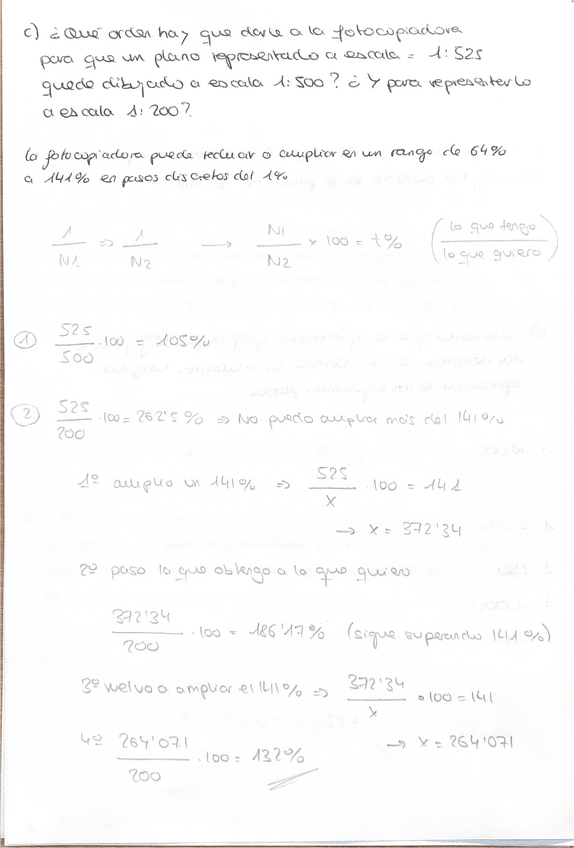 c) ¿Qué orden hay que darle a la fotocopiadora
para que un plano representado a escala = 1:525
quede dibujado a escala 1:500? ¿Y para representarlo
a escala 1:200?
La fotocopiadora puede reducir o ampliar en un rango de 64%
a 141% en pasos discretos del 1%
1/N1 => 1/N2 → N1/N2 × 100 = t% (lo que tengo/lo que quiero)
① 525/500 · 100 = 105%
② 525/200 · 100 = 262'5% => No puedo ampliar más del 141%
1º amplio un 141% => 525/x · 100 = 141
→ x = 372'34
2º paso lo que obtengo a lo que quiero
372'34/200 · 100 = 186'17% (sigue superando 141%)
3º vuelvo a ampliar el 141% => 372'34/x · 100 = 141
→ x = 264'071
4º 264'071/200 · 100 = 132%